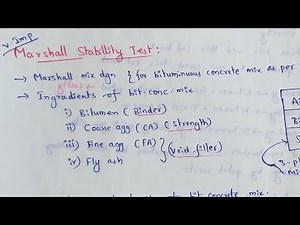 v. Imp
Marshall Stability Test:
→ Marshall mix dgn { for bituminuous concrete mix as per
→ Ingradients of bit. conc. mix
i) Bitumen (Binder)
ii) Coarse agg (CA) (strength)
iii) Fine agg (FA) } (void filler)
iv) Fly ash
3-p
Mi
of bit concrete mix.